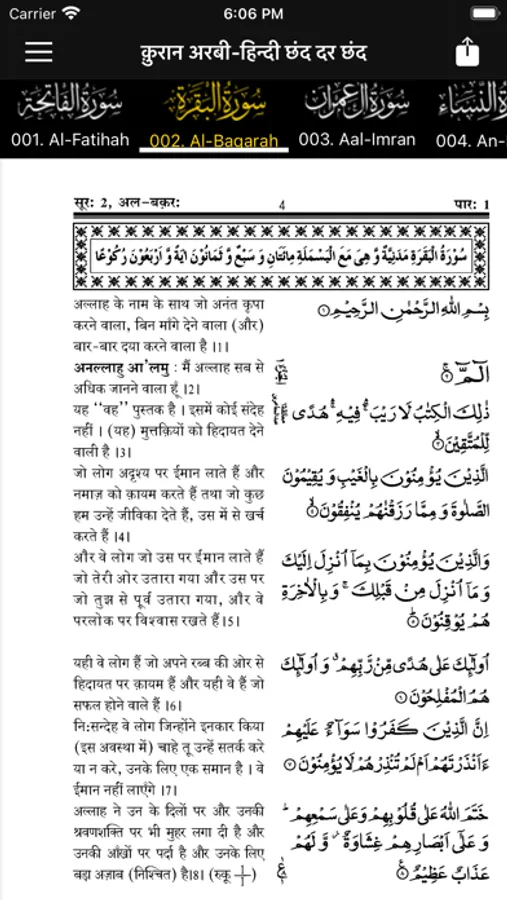 Carrier 6:06 PM
क़ुरान अरबी-हिन्दी छंद दर छंद
سُورَةُ الفَاتِحَة سُورَةُ البَقَرَة سُورَةُ آلِ عِمْرَان النِّسَاء
001. Al-Fatihah 002. Al-Baqarah 003. Aal-Imran 004. An-
सूर: 2, अल-बक़र: 4 पार: 1
سُوْرَةُ الْبَقَرَةِ مَدَنِيَّةٌ وَّ هِىَ مَعَ الْبَسْمَلَةِ مِائَتَانِ وَ سَبْعٌ وَّ ثَمَانُوْنَ اٰيَةً وَّ اَرْبَعُوْنَ رُكُوْعًا
अल्लाह के नाम के साथ जो अनंत कृपा
करने वाला, बिन माँगे देने वाला (और)
बार-बार दया करने वाला है ।1।
بِسْمِ اللّٰهِ الرَّحْمٰنِ الرَّحِيْمِ۝١
अनल्लाहु आ'लमु : मैं अल्लाह सब से
अधिक जानने वाला हूँ ।2।
الٓمّٓ ۝٢
यह ‘‘वह’’ पुस्तक है । इसमें कोई संदेह
नहीं । (यह) मुत्तक़ियों को हिदायत देने
वाली है ।3।
ذٰلِكَ الْكِتٰبُ لَا رَيْبَ ۛ فِيْهِ ۛ هُدًى
لِّلْمُتَّقِيْنَ۝٣
जो लोग अदृश्य पर ईमान लाते हैं और
नमाज़ को क़ायम करते हैं तथा जो कुछ
हम उन्हें जीविका देते हैं, उस में से खर्च
करते हैं ।4।
الَّذِيْنَ يُؤْمِنُوْنَ بِالْغَيْبِ وَ يُقِيْمُوْنَ
الصَّلٰوةَ وَ مِمَّا رَزَقْنٰهُمْ يُنْفِقُوْنَ۝٤
और वे लोग जो उस पर ईमान लाते हैं
जो तेरी ओर उतारा गया और उस पर
जो तुझ से पूर्व उतारा गया, और वे
परलोक पर विश्वास रखते हैं ।5।
وَالَّذِيْنَ يُؤْمِنُوْنَ بِمَآ اُنْزِلَ اِلَيْكَ
وَ مَآ اُنْزِلَ مِنْ قَبْلِكَ ۚ وَ بِالْاٰخِرَةِ
هُمْ يُوْقِنُوْنَ۝٥
यही वे लोग हैं जो अपने रब्ब की ओर से
हिदायत पर क़ायम हैं और यही वे हैं जो
सफल होने वाले हैं ।6।
اُولٰٓئِكَ عَلٰى هُدًى مِّنْ رَّبِّهِمْ ۙ وَ اُولٰٓئِكَ
هُمُ الْمُفْلِحُوْنَ۝٦
नि:सन्देह वे लोग जिन्होंने इनकार किया
(इस अवस्था में) चाहे तू उन्हें सतर्क करे
या न करे, उनके लिए एक समान है । वे
ईमान नहीं लाएँगे ।7।
اِنَّ الَّذِيْنَ كَفَرُوْا سَوَآءٌ عَلَيْهِمْ
ءَاَنْذَرْتَهُمْ اَمْ لَمْ تُنْذِرْهُمْ لَا يُؤْمِنُوْنَ۝٧
अल्लाह ने उन के दिलों पर और उनकी
श्रवणशक्ति पर भी मुहर लगा दी है और
उनकी आँखों पर पर्दा है और उनके लिए
बड़ा अज़ाब (निश्चित) है।8। (रुकू 1/1)
خَتَمَ اللّٰهُ عَلٰى قُلُوْبِهِمْ وَ عَلٰى سَمْعِهِمْ ؕ
وَ عَلٰٓى اَبْصَارِهِمْ غِشَاوَةٌ ۫ وَّ لَهُمْ
عَذَابٌ عَظِيْمٌ۝٨ ع